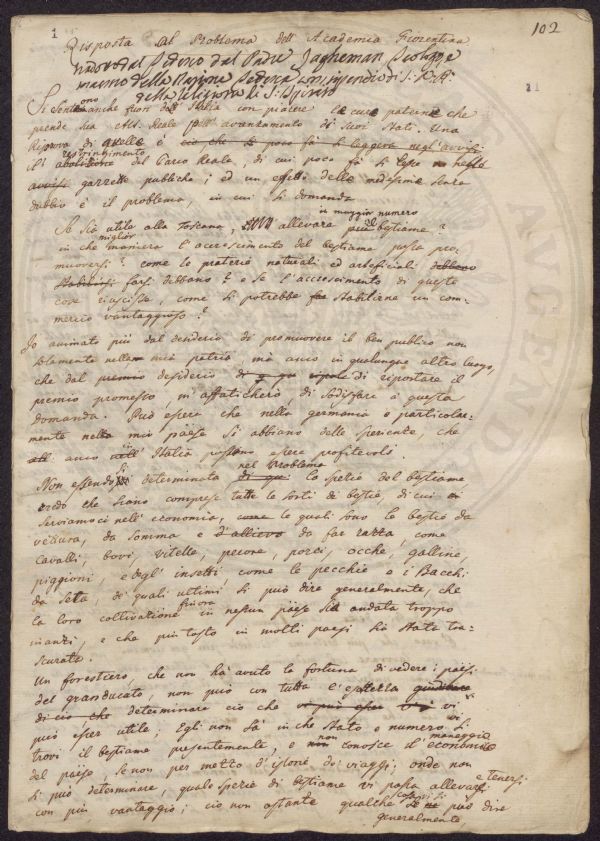 1
102
Risposta al Problema dell'Academia Fiorentina
del Padre Jagheman
manno della Nazione Tedesca
della
Si sentono anche fuori dell'Italia con piacere le cure paterne che
prende Sua Alt. Reale per avanzamento di suoi Stati. Una
riprova di quelle è ciò che si poco fà si leggeva negl'avvisi
restringimento
il abolizione del Parco Reale, di cui poco fà si lesse nelle
avvisi gazzette publiche; ed un effetto delle medesime senza
dubbio è il problema, in cui si domanda
in maggior numero
Se sia utile alla Toscana, allevare più bestiame?
miglior
in che maniera l'accrescimento del bestiame possa pro-
muoversi? come le praterie naturali ed arteficiali debbano
stabilirsi farsi debbano? e se l'accrescimento di queste
cose riuscisse, come si potrebbe fare stabilirne un com-
mercio vantaggioso?
Io animato più dal desiderio di promuovere il ben publico non
solamente nella mia patria, mà anco in qualunque altro luogo,
che dal premio desiderio di riportare il
premio promesso, m'affaticherò, di sodisfare a questa
domanda. Può essere che nella germania e particolar-
mente nella mia paese si abbiano delle sperienze, che
all' anco nell' Italia possano essere profitevoli.
si nel Problema
Non essendo determinata di qui la spezie del bestiame
credo che siano comprese tutte le sorti di bestie, di cui
serviamoci nell'economia, come le quali sono le bestie da
vettura, da somma e d'allievo da far razza, come
cavalli, bovi, vitelle, pecore, porci, ocche, galline,
piggioni, e degl'insetti come le pecchie e i Bacchi
da seta, de' quali ultimi si può dire generalmente, che
finora
la loro coltivazione in nessun paese sia andata troppo
inanzi, e che piutosto in molti paesi sia stata tra-
scurata.
Un forestiero, che non hà avuto la fortuna di vedere i paesi
del granducato, non può con tutta l'esattezza giudicare
di ciò che determinare ciò che vi può esser vi
può esser utile; Egli non sà in che stato e numero si
vi
trovi il bestiame presentemente, e non conosce il economia
non maneggio
del paese se non per mezzo d'istorie de' viaggi; onde non
si può determinare, quale spezie di bestiame vi possa allevarsi
e tenersi
con più vantaggio; ciò non ostante qualche può dire
generalmente,